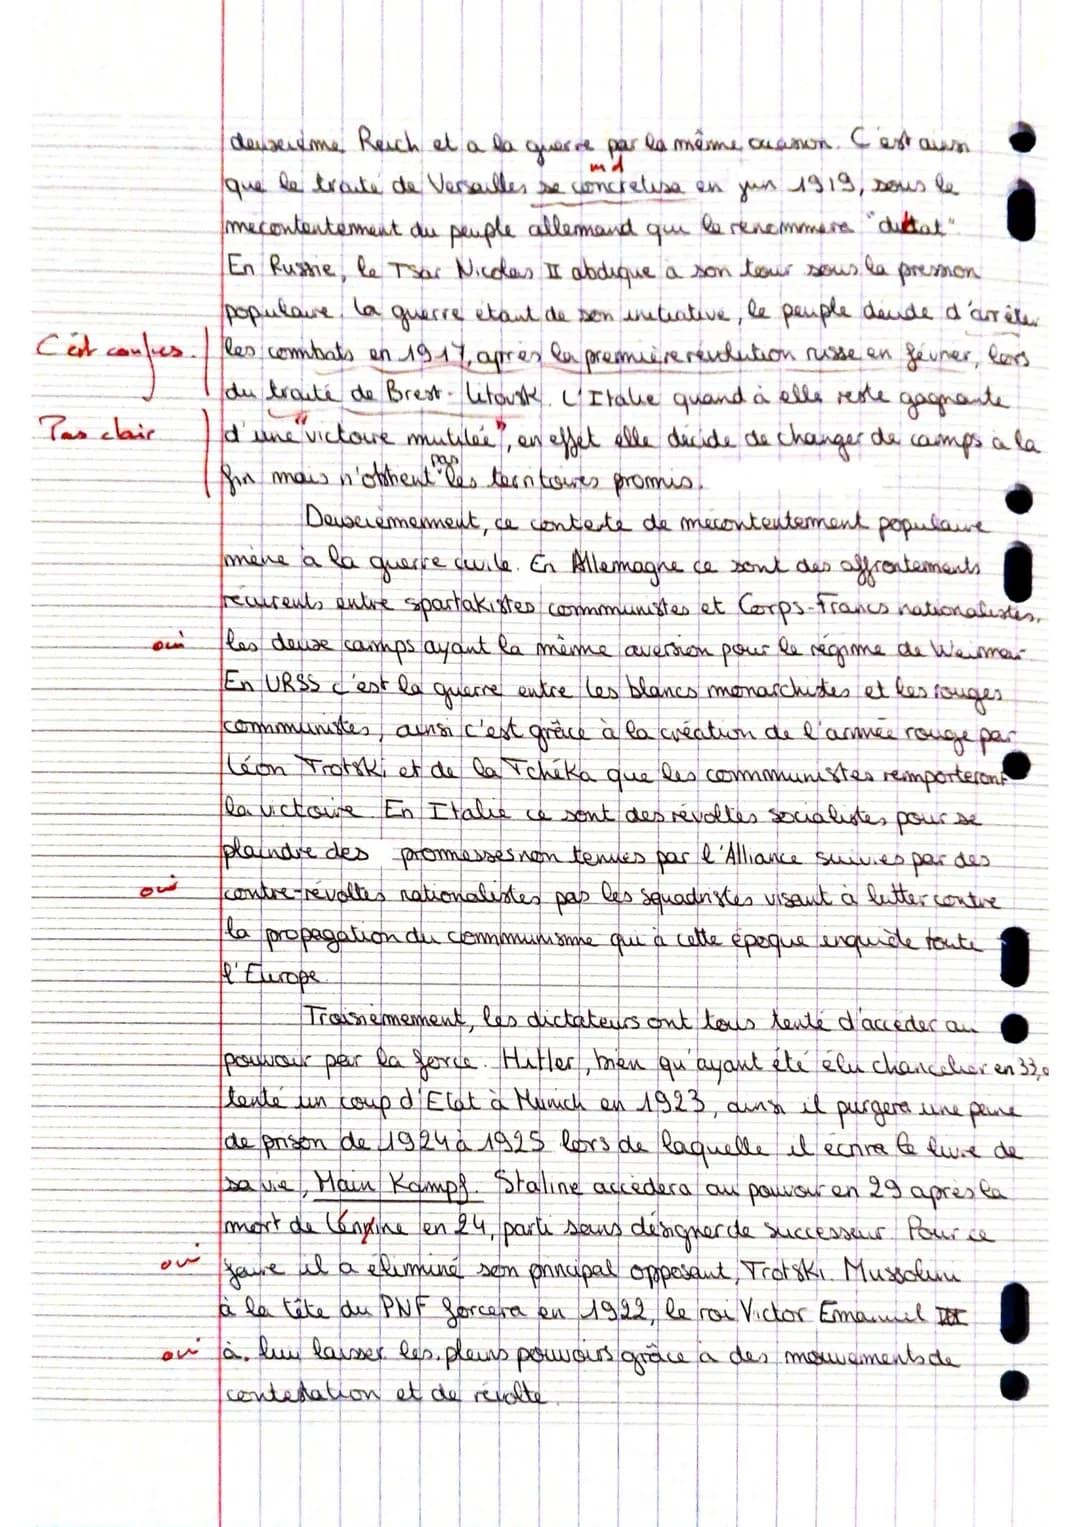 deuxième Reich et a la guerre par la même occasion. C'est ainsi
md
que le traité de Versailles se concretisa en juin 1919, sous le
mecontentement du peuple allemand qui le renommera "diktat".
En Russie, le Tsar Nicolas II abdique a son tour sous la pression
populaire. La guerre etant de son initiative, le peuple decide d'arrêter
C'est confus. les combats en 1917, après la première revolution russe en février, lors
du traité de Brest-Litovsk. L'Italie quand à elle reste gagnante
Pas clair d'une "victoire mutilée", en effet elle décide de changer de camps à la
fin mais n'obtient pas les territoires promis.
Deuxièmement, ce contexte de mecontentement populaire
mène à la guerre civile. En Allemagne ce sont des affrontements
récurents entre spartakistes communistes et Corps-Francs nationalistes,
oui les deux camps ayant la même aversion pour le régime de Weimar.
En URSS c'est la guerre entre les blancs monarchistes et les rouges
communistes, ainsi c'est grâce à la création de l'armée rouge par
Léon Trotski et de la Tchéka que les communistes remporteront
la victoire. En Italie ce sont des révoltes socialistes pour se
plaindre des promesses non tenues par l'Alliance suivies par des
oui contre-révoltes nationalistes par les squadristes visant à lutter contre
la propagation du communisme qui à cette époque inquiète toute
l'Europe.
Troisièmement, les dictateurs ont tous tenté d'acceder au
pouvoir par la force. Hitler, bien qu'ayant été élu chancelier en 33, a
tenté un coup d'Etat à Munich en 1923, ainsi il purgera une peine
de prison de 1924 à 1925 lors de laquelle il écrira le livre de
sa vie, Main Kampf. Staline accèdera au pouvoir en 29 après la
mort de Lénine en 24, parti sans désigner de successeur. Pour ce
oui faire il a éliminé son principal opposant, Trotski. Mussolini
à la tête du PNF forcera en 1922, le roi Victor Emanuel III
oui à lui laisser les pleins pouvoirs grâce a des mouvements de
contestation et de révolte.